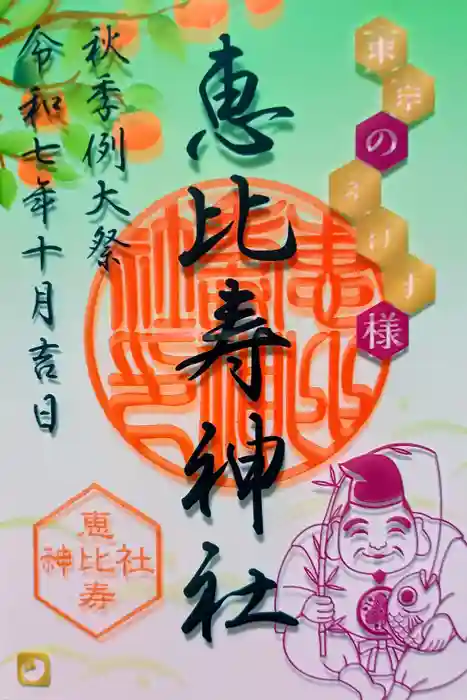 東京のえびす様
恵比寿神社
秋季例大祭
令和七年十月吉日
恵比寿
神社